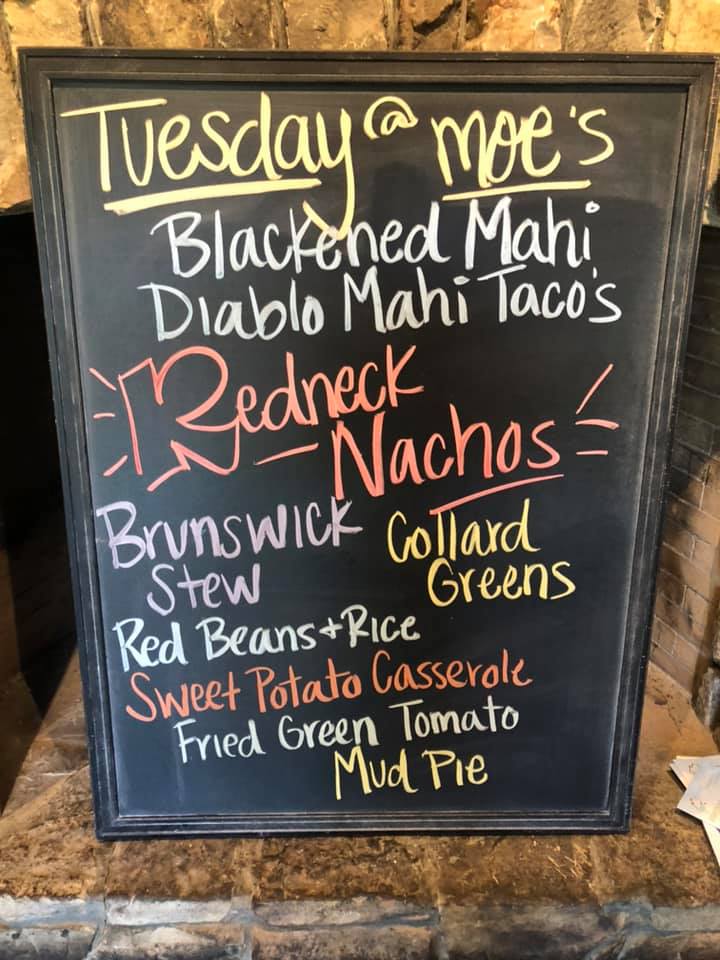 Tuesday @ moe's
Blackened Mahi
Diablo Mahi Taco's
Redneck
Nachos
Brunswick
Stew
Collard
Greens
Red Beans + Rice
Sweet Potato Casserole
Fried Green Tomato
Mud Pie